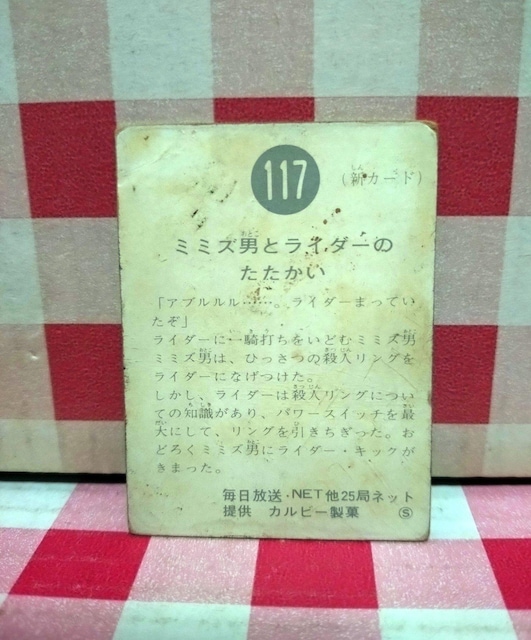 117
(新カード)
ミミズ男とライダーの
たたかい
「アブルルル……。ライダーまってい
たぞ」
ライダーに一騎打ちをいどむミミズ男
ミミズ男は、ひっさつの殺人リングを
ライダーになげつけた。
しかし、ライダーは殺人リングについ
ての知識があり、パワースイッチを最
大にして、リングを引きちぎった。お
どろくミミズ男にライダー・キックが
きまった。
毎日放送・NET他25局ネット
提供 カルビー製菓 Ⓢ